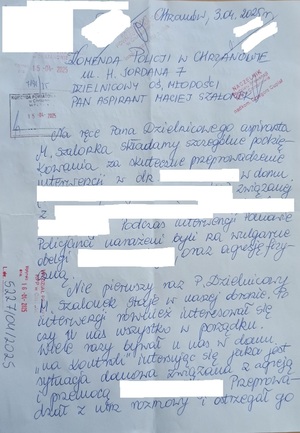 Chrzanów, 3.04.2025r
Komenda Policji w Chrzanowie
ul. H. Jordana 7
Dzielnicowy Oś. Młodości
Pan Aspirant Maciej Szalonek
15-04-2025
Na ręce Pana Dzielnicowego aspiranta
M. Szalonka składamy szczególne podzię-
kowania za skuteczne przeprowadzenie
interwencji w dn. w domu
związanej
z
Podczas interwencji
Policjanci narażeni byli na wulgarne
obelgi oraz agresję fizy-
czną.
Nie pierwszy raz P. Dzielnicowy
M. Szalonek staje w naszej obronie. Po
interwencji również interesował się
czy u nas wszystko w porządku.
Wiele razy bywał u nas w domu
"na kontroli" interesując się jaka jest
sytuacja domowa związana z agresją
i przemocą Przeprowa-
dzał z w/w rozmowy i ostrzegał go